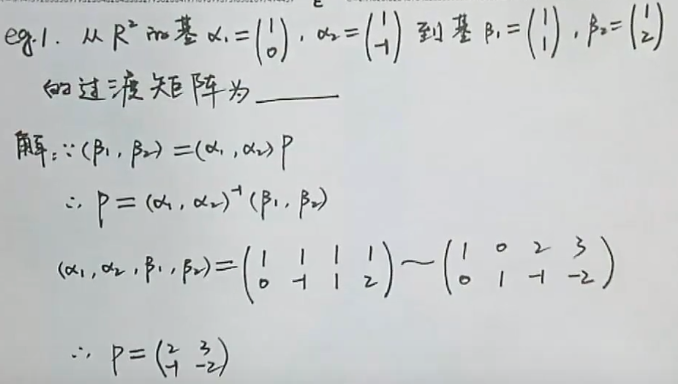 eg.1. 从 R² 的基 α₁=(1 0), α₂=(1 -1) 到基 β₁=(1 1), β₂=(1 2)
的过渡矩阵为______
解:∵(β₁, β₂)=(α₁, α₂)P
∴ P=(α₁, α₂)⁻¹(β₁, β₂)
(α₁, α₂, β₁, β₂)=(1 1 1 1
0 -1 1 2)~(1 0 2 3
0 1 -1 -2)
∴ P=(2 3
-1 -2)